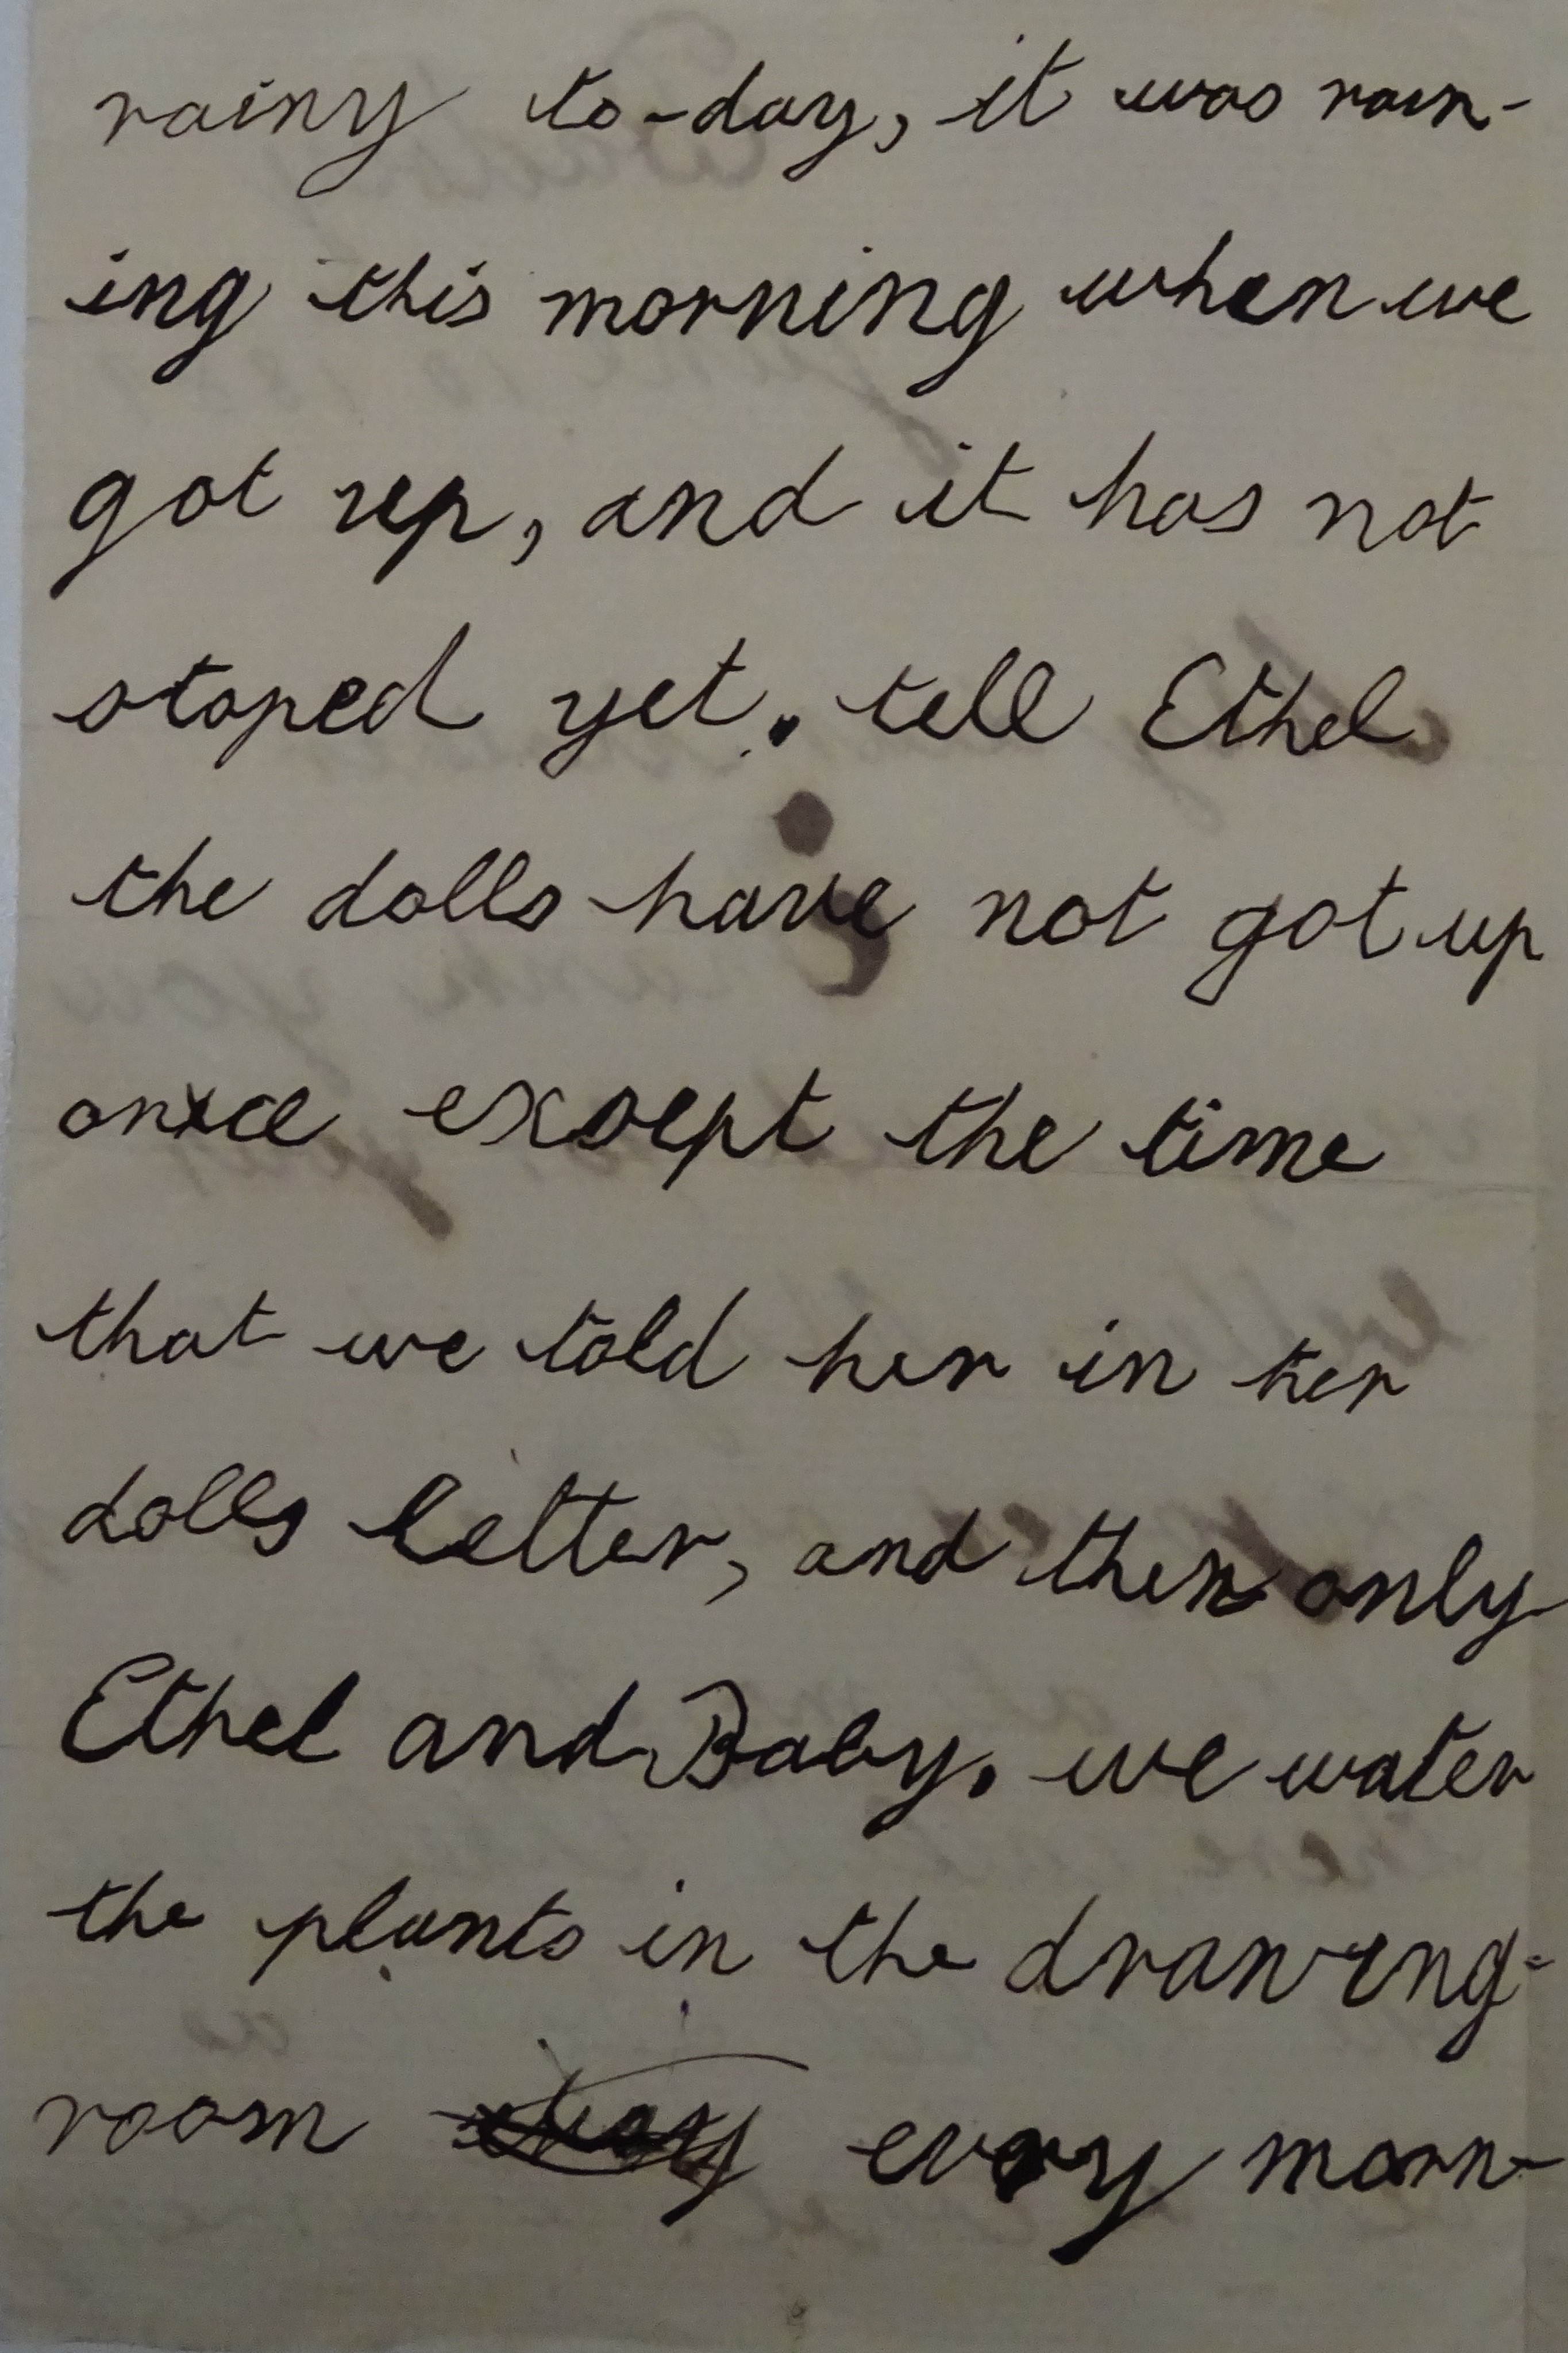 rainy to-day, it was rain-
ing this morning when we
got up, and it has not
stoped yet. tell Ethel
the dolls have not got up
once except the time
that we told her in her
dolls letter, and then only
Ethel and Baby. we water
the plants in the drawing-
room every morn-